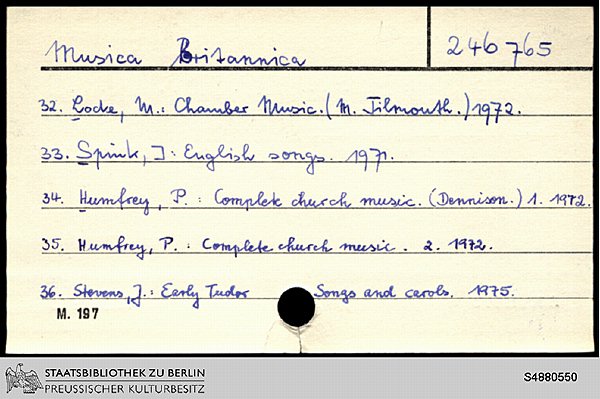 Musica Britannica
246765
32. Locke, M.: Chamber Music. (M. Tilmouth.) 1972.
33. Spink, I: English songs. 1971.
34. Humfrey, P.: Complete church music. (Dennison.) 1. 1972.
35. Humfrey, P.: Complete church music. 2. 1972.
36. Stevens, J.: Early Tudor Songs and carols. 1975.
M. 197
STAATSBIBLIOTHEK ZU BERLIN
PREUSSISCHER KULTURBESITZ
S4880550